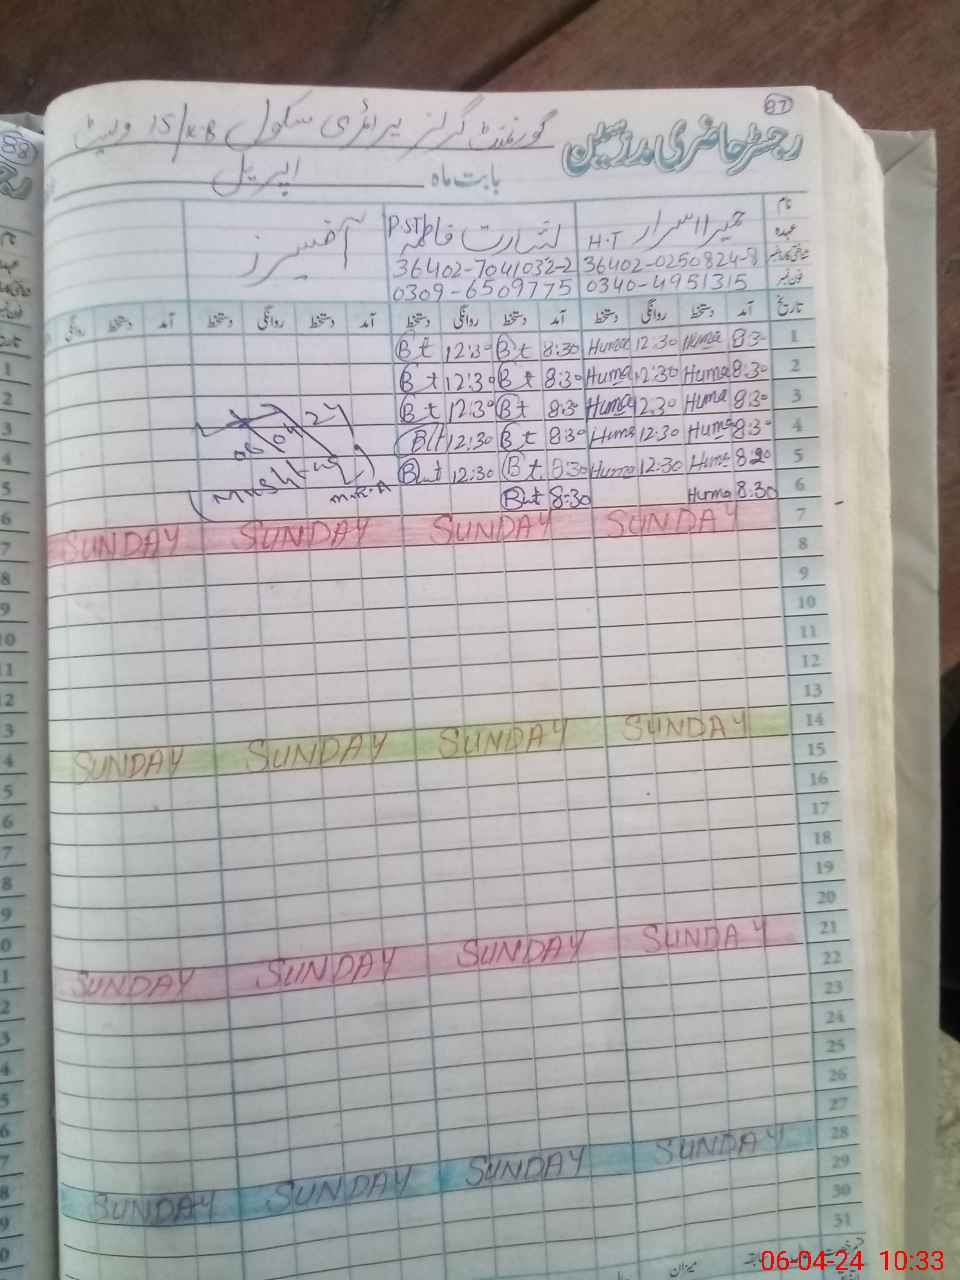 87
رجسٹر حاضری مدرسین گورنمنٹ گرلز پرائمری سکول 15/K-B ویسٹ
بابت ماہ اپریل
نام
عہدہ حمیرا اسرار H.T بشارت فاطمہ PST آفیسرز
شناختی کارڈ نمبر 36402-0250824-8 36402-7041032-2
فون نمبر 0340-4951315 0309-6509775
تاریخ آمد دستخط روانگی دستخط آمد دستخط روانگی دستخط آمد دستخط روانگی دستخط آمد دستخط روانگی
1 8:30 Huma 12:30 Huma 8:30 Bt 12:30 Bt
2 8:30 Huma 12:30 Huma 8:30 Bt 12:30 Bt
3 8:30 Huma 12:30 Huma 8:30 Bt 12:30 Bt
4 8:30 Huma 12:30 Huma 8:30 Bt 12:30 Bt
5 8:30 Huma 12:30 Huma 8:30 Bt 12:30 But
6 8:30 Huma 8:30 But
06 04 24
M.R.A
7 SUNDAY SUNDAY SUNDAY SUNDAY
8
9
10
11
12
13
14 SUNDAY SUNDAY SUNDAY SUNDAY
15
16
17
18
19
20
21 SUNDAY SUNDAY SUNDAY SUNDAY
22
23
24
25
26
27
28 SUNDAY SUNDAY SUNDAY SUNDAY
29
30
31
میزان
06-04-24 10:33